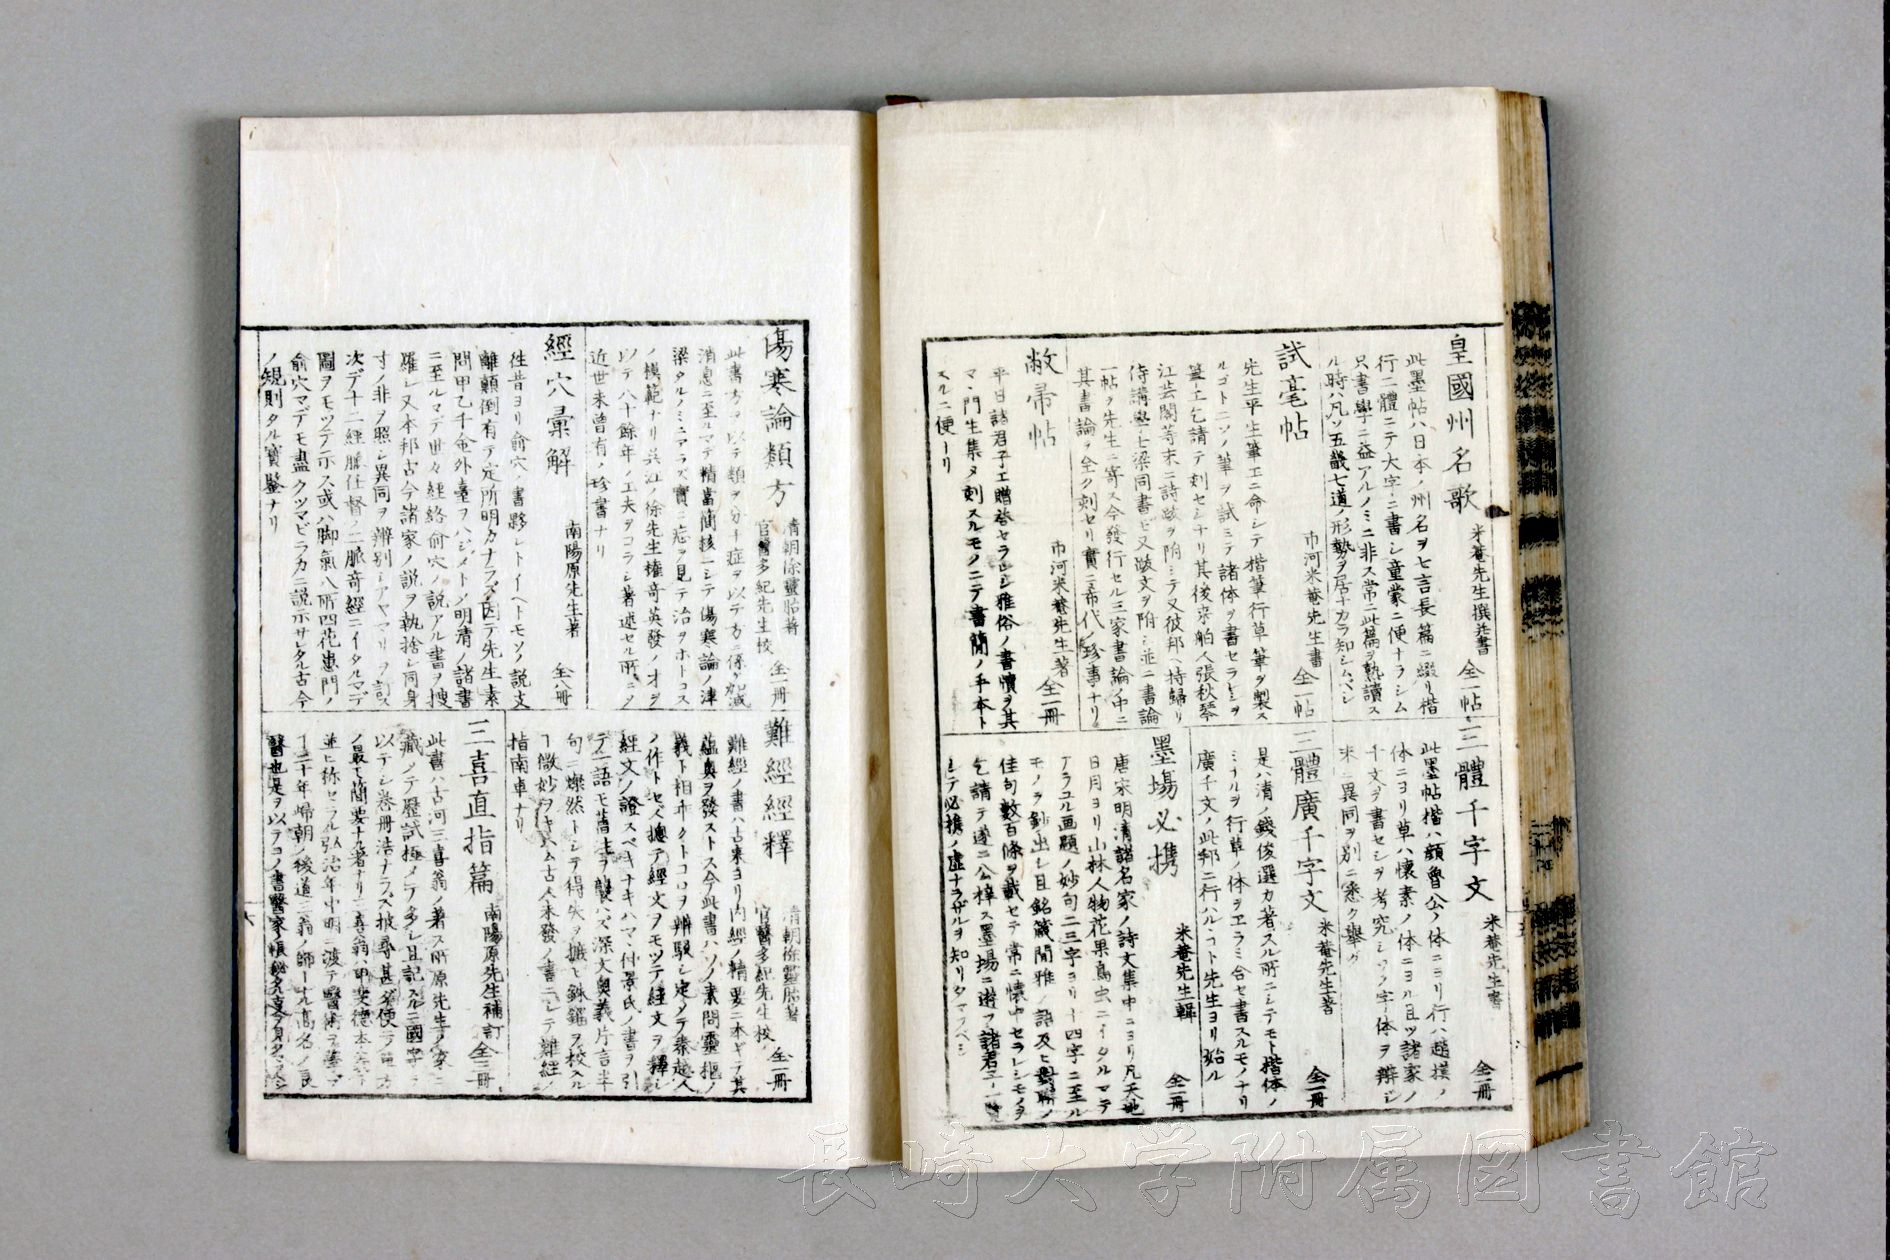 皇國州名歌 米菴先生撰并書 全一帖
此墨帖ハ日本ノ州名ヲ七言長篇ニ綴リ楷
行二體ニテ大字ニ書シ童蒙ニ便ナラシム
只書學ニ益アルノミニ非ス常ニ此篇ヲ熟讀ス
ル時ハ凡ソ五畿七道ノ形勢ヲ居ナカラ知シムベシ
試毫帖 市河米菴先生書 全一帖
先生平生筆工ニ命シテ楷筆行草筆ヲ製ス
ルゴトニソノ筆ヲ試ミテ諸体ヲ書セラレシヲ
筆工乞請テ刻セシナリ其後来舶人張秋琴
江芸閣等末ニ詩跋ヲ附シテ又彼邦ヘ持歸リ
侍講學士梁同書ビ又跋文ヲ附シ並ニ書論
一帖ヲ先生ニ寄ス今發行セル三家書論中ニ
其書論ヲ全ク刻セリ實ニ希代ノ珍事ナリ
敝帚帖 市河米菴先生著 全一冊
平日諸君子エ贈答セラレシ雅俗ノ書牘ヲ其
マヽ門生集メ刻スルモノニテ書簡ノ手本ト
スルニ便ナリ
三體千字文 米菴先生書 全一冊
此墨帖楷ハ顔魯公ノ体ニヨリ行ハ趙撲ノ
体ニヨリ草ハ懐素ノ体ニヨル且ツ諸家ノ
千文ヲ書セシヲ考究シソノ字体ヲ辨シ
末ニ異同ヲ別ニ悉ク舉グ
三體廣千字文 米菴先生著 全一冊
是ハ清ノ錢俊選カ著スル所ニシテモト楷体ノ
ミナルヲ行草ノ体ヲヱラミ合セ書スルモノナリ
廣千文ノ此邦ニ行ハルヽコト先生ヨリ始ル
墨場必携 米菴先生輯 全二冊
唐宋明清諸名家ノ詩文集中ニヨリ凡天地
日月ヨリ山林人物花果鳥虫ニイタルマテ
アラユル画題ノ妙句二三字ヨリ十四字ニ至ル
モノヲ鈔出シ且銘箴閒雅ノ語及ヒ對聯ノ
佳句數百條ヲ載セテ常ニ懐中セラレシモノヲ
乞請テ遂ニ公梓ス墨場ニ遊フ諸君子一覽
シテ必携ノ虚ナラザルヲ知リタマフベシ
傷寒論類方 清朝徐靈胎著 官醫多紀先生校 全一冊
此書方ヲ以テ類ヲ分チ症ヲ以テ方ニ係ケ加減
消息ニ至ルマテ精當簡核ニシテ傷寒論ノ津
梁タルノミニアラズ實ニ症ヲ見テ治ヲホトコス
ノ模範ナリ呉江ノ徐先生權奇英發ノオヲ
以テ八十餘年ノ工夫ヲコラシ著述セル所ニシテ
近世未曾有ノ珍書ナリ
經穴彙解 南陽原先生著 全八冊
往昔ヨリ俞穴ノ書夥シトイヘトモソノ説支
離顛倒有テ定所明カナラズ因テ先生素
問甲乙千金外臺ヲハシメトメ明清ノ諸書
ニ至ルマデ世々經絡俞穴ノ説アル書ヲ捜
羅シ又本邦古今諸家ノ説ヲ執捨シ同身
寸ノ非ヲ照シ異同ヲ辨別シアヤマリヲ訂ス
次デ十二經脈任督ノ二脈奇經ニイタルマデ
圖ヲモツテ示ス或ハ脚氣八所四花患門ノ
俞穴マデモ盡クツマビラカニ説示サレタル古今
ノ規則タル寶鑒ナリ
難經經釋 清朝徐靈胎著 官醫多紀先生校 全一冊
難經ノ書ハ古来ヨリ内經ノ精要ニ本ギテ其
蘊奥ヲ發ストス今此書ハソノ素問靈樞ノ
義ト相乖クトコロヲ辨駁シ定シテ秦越人
ノ作トセズ據テ經文ヲモツテ經文ヲ釋シ
經文ノ證スベキナキハマヽ付景氏ノ書ヲ引
テ一語モ舊注ヲ襲ハズ深文奥義片言半
句モ燦然トシテ得失ヲ攟ヒ銖錙ヲ校スル
ノ微妙ヲキハム古人未發ノ書ニシテ難經ノ
指南車ナリ
三喜直指篇 南陽原先生補訂 全三冊
此書ハ古河三喜翁ノ著ス所原先生ノ家ニ
藏メテ歴試極メテ多シ且記スルニ國字ヲ
以テシ巻冊浩ナラズ披尋甚ダ便ニシテ
ノ最モ簡要ナル者ナリ